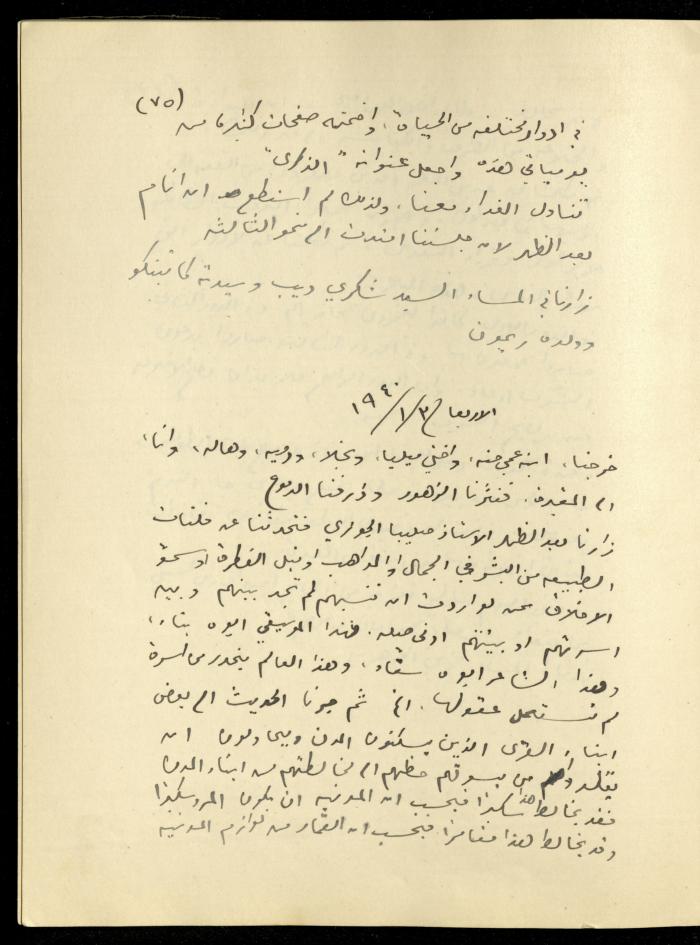 (٧٥)
في ادوار مختلفه من الحياة، واضمنه صفحات كثيره من
يومياتي هذه واجعل عنوانه "الذكرى"
تناول الغداء معنا، ولذلك لم استطع ان انام
بعد الظهر لان جلستنا امتدت الى نحو الثالثه
زارنا في المساء السيد شكري ديب وسيدة كاتبنكو
وولده ريمون
الاربعا ٣/١/١٩٤٠
خرجنا، ابنة عمي حنه، واختي ميليا، ونجلا، ودميه، وهاله، وانا،
الى المقبرة. فنثرنا الزهور وذرفنا الدموع
زارنا بعد الظهر الاستاذ صليبا الجوزي فتحدثنا عن فلتات
الطبيعه من البشر في الجمال او المواهب او نبل الفطرة او سمو
الاخلاق ممن لو اردت ان تنسبهم لم تجد بينهم وبين
اسرتهم او بيئتهم ادنى صله. فهذا الموسيقي ابوه بناء،
وهذا الشاعر ابوه سقاء، وهذا العالم ينحدر من اسرة
لم تستعمل عقولها. الخ ثم جرنا الحديث الى بعض
ابناء القرى الذين يسكنون المدن ويحاولون ان
يقلدوا من يسوقهم حظهم الى مخالطتهم من ابناء المدن
فقد يخالط هذا سكيرا فيحسب ان المدنيه ان يكون المرء سكيرا
وقد يخالط هذا مقامرا فيحسب ان القمار من لوازم المدنيه